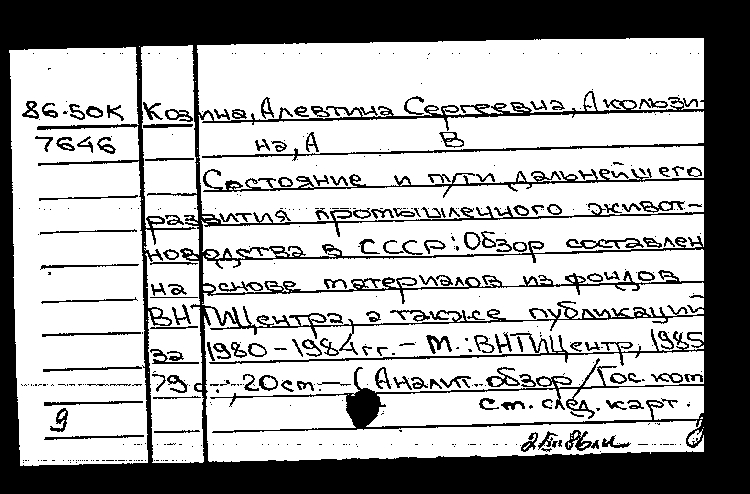 86-50К Козина, Алевтина Сергеевна, Аколюзи-
7646 на, А В
Состояние и пути дальнейшего
развития промышленного живот-
новодства в СССР: Обзор составлен
на основе материалов из фондов
ВНТИЦентра, а также публикаций
за 1980-1984гг. - М.: ВНТИЦентр, 1985
79 с.; 20 см. - (Аналит. обзор / Гос. ком
9 см. след. карт.